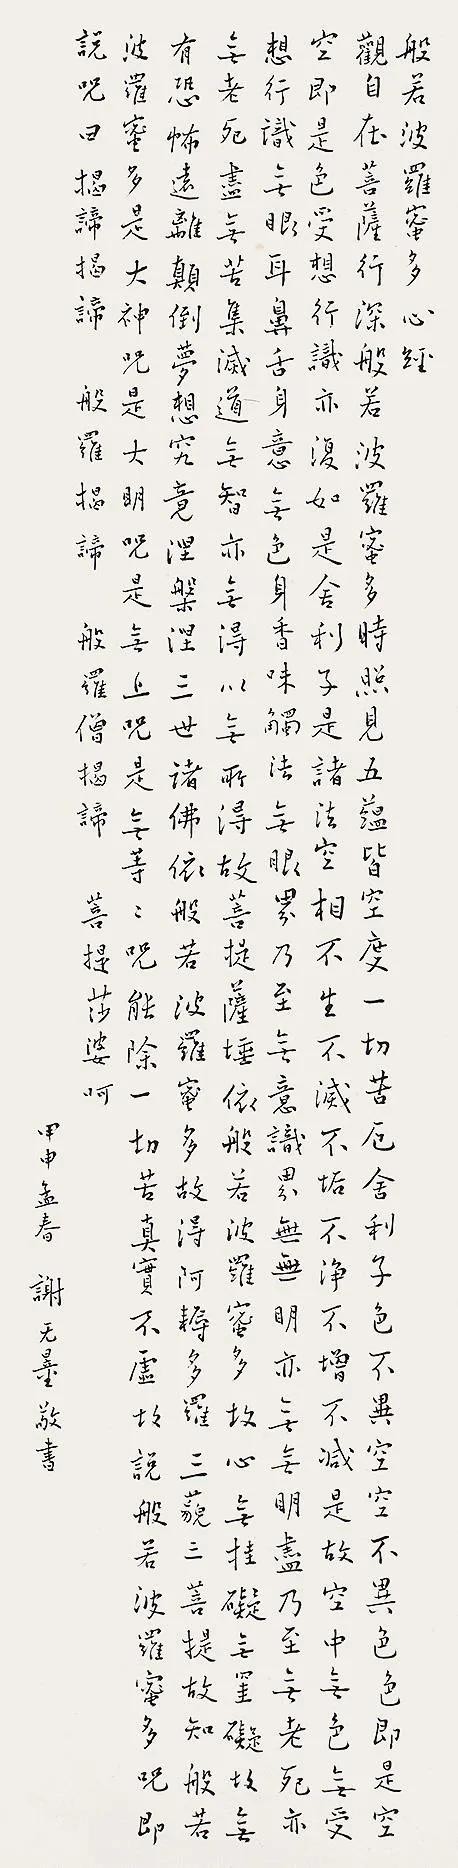 般若波羅蜜多心經
觀自在菩薩行深般若波羅蜜多時照見五蘊皆空度一切苦厄舍利子色不異空空不異色色即是空
空即是色受想行識亦復如是舍利子是諸法空相不生不滅不垢不淨不增不減是故空中無色無受
想行識無眼耳鼻舌身意無色身香味觸法無眼界乃至無意識界無無明亦無無明盡乃至無老死亦
無老死盡無苦集滅道無智亦無得以無所得故菩提薩埵依般若波羅蜜多故心無挂礙無罣礙故無
有恐怖遠離顛倒夢想究竟涅槃涅三世諸佛依般若波羅蜜多故得阿耨多羅三藐三菩提故知般若
波羅蜜多是大神咒是大明咒是無上咒是無等〻咒能除一切苦真實不虛故說般若波羅蜜多咒即
說咒曰揭諦揭諦 般羅揭諦 般羅僧揭諦 菩提莎婆呵
甲申孟春 謝无量敬書